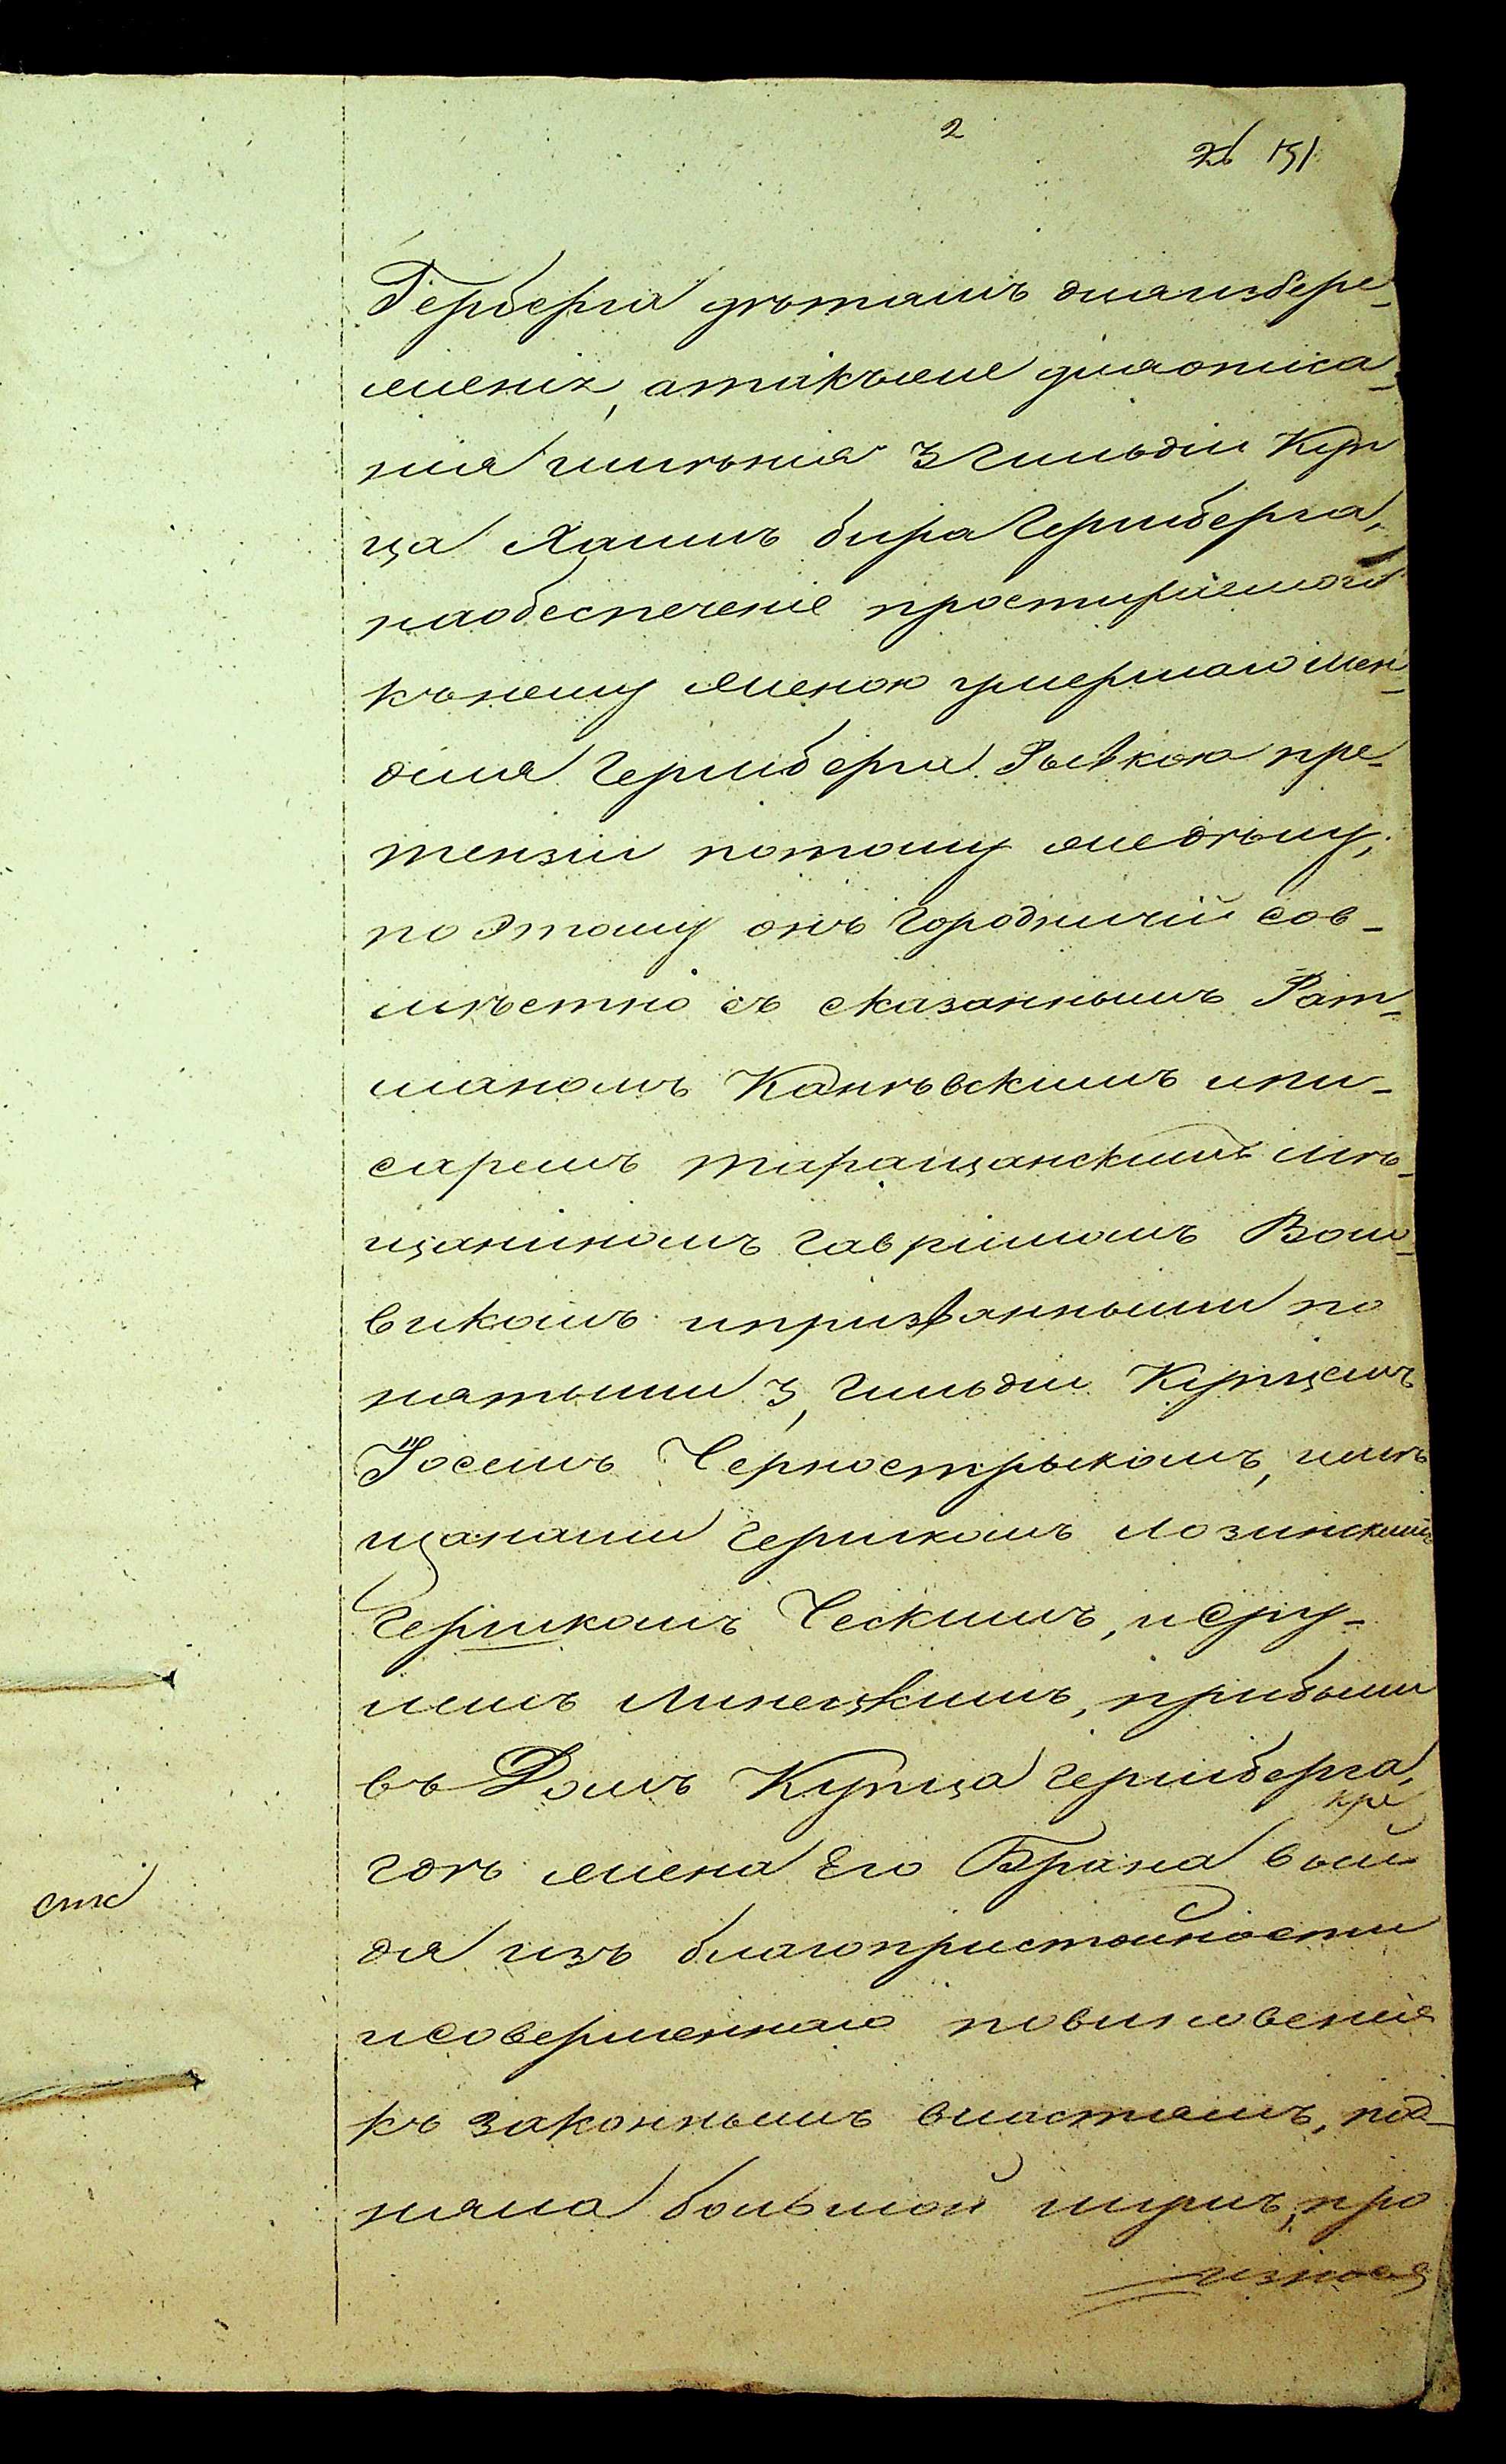 2
26 151
Гербергa дѣтамъ дляизбере-
женія, атакъже дляописа-
нія имѣнія 3 Гильдіи Куп
ца Хаимъ бера Герцберга,
наобеспеченіе простираемой
къ нему женою умершаго Мен-
деля Герцберга Рывкою пре-
тензіи потому жедѣлу,
поэтому онъ Городничій сов-
мѣстно съ сказаннымъ Рат-
маномъ Каневскимъ ипи-
саремъ таращанскимъ мѣ-
щаниномъ Гавріиломъ Вой-
викомъ ипризванными по
нятыми 3, Гильдіи Купцемъ
Іосемъ Черноетрыкомъ, имѣ
щанами Гершкомъ Лозинскимъ
Гершкомъ Ческимъ, иСру-
лемъ Линецкимъ, прибыли
въ Домъ Купца Герцберга,
гдѣ жена Его Брана вый
дя изъ благопристойности
исовершеннаго повиновенія
къ законнымъ властямъ, под-
няла большой шумъ, про
износя